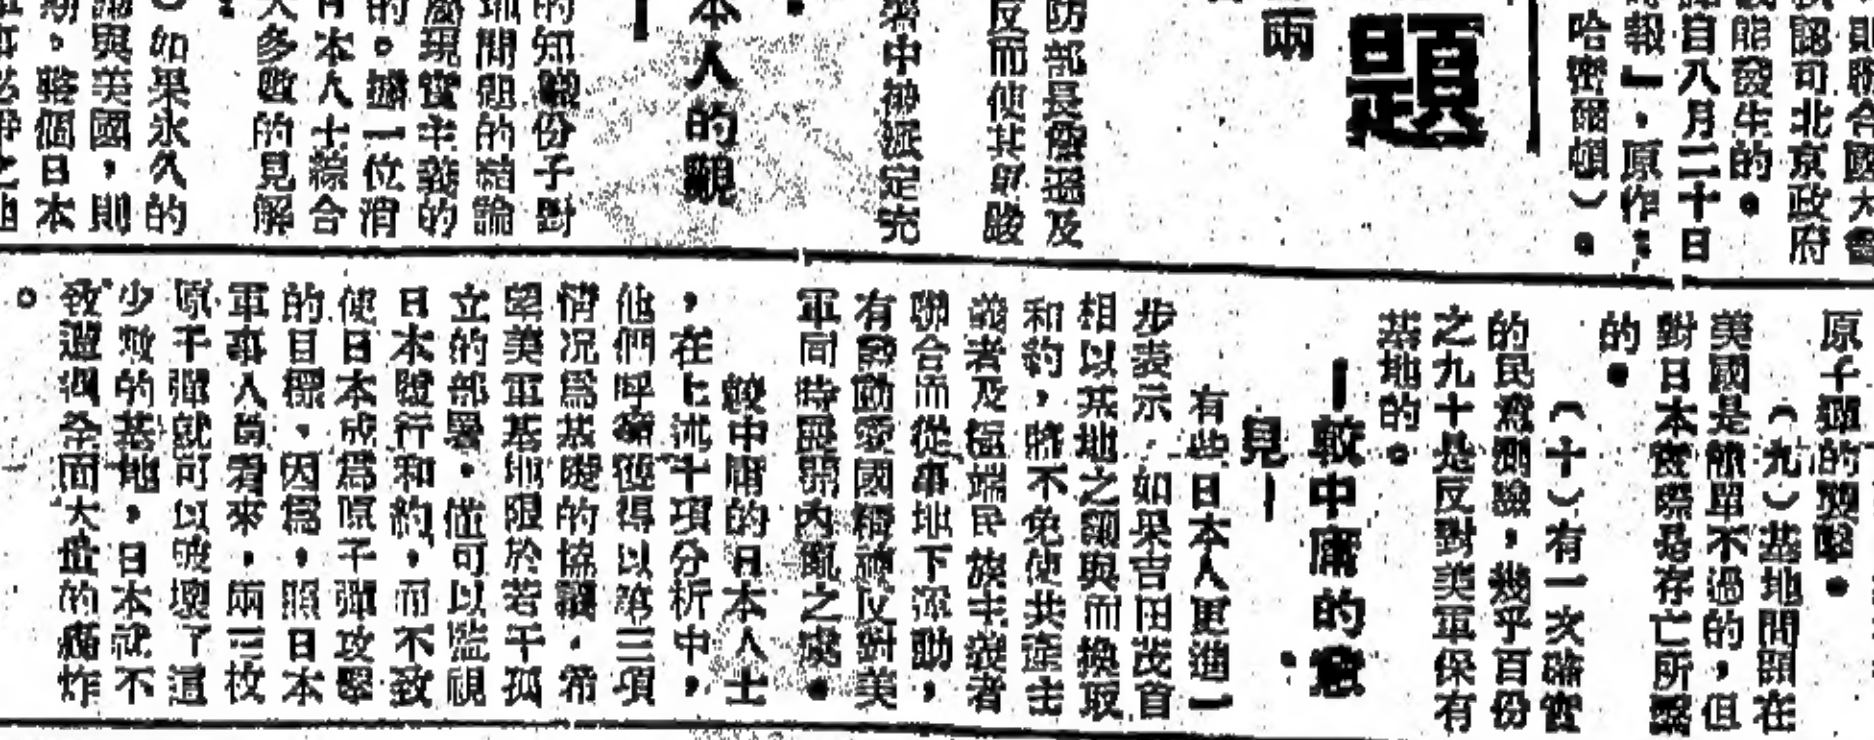 則聯合國大會
認可北京政府
能發生的。
自八月二十日
報』，原作：
哈密爾頓）。
題
兩
防部長
反而使其
署中被派定究
本人的觀
的知識份子對
問題的結論
現實主義的
的。據一位消
日本人士綜合
大多數的見解
）如果永久的
與美國，則
。整個日本
原子彈的襲擊。
（九）基地問題在
美國是簡單不過的，但
對日本實際是存亡所繫
的。
（十）有一次確實
的民意測驗，幾乎百份
之九十是反對美軍保有
基地的。
—較中庸的意
見—
有些日本人更進一
步表示，如果吉田茂首
相以基地之讓與而換取
和約，將不免使共產主
義者及極端民族主義者
聯合而從事地下活動，
有發動愛國精神反對美
軍同時展開內亂之處。
較中庸的日本人士
，在上述十項分析中，
他們呼籲獲得以第三項
情況為基礎的協議。希
望美軍基地限於若干孤
立的部署，僅可以監視
日本履行和約，而不致
使日本成為原子彈攻擊
的目標。因為，照日本
軍事人員看來，兩三枚
原子彈就可以破壞了這
少數的基地，日本就不
致遭遇全面大量的轟炸
。